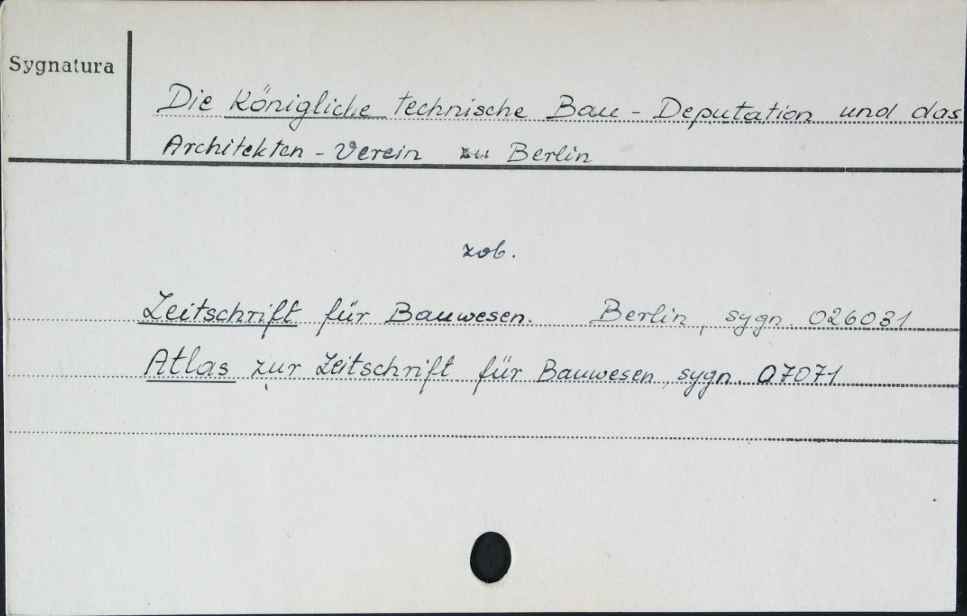 Sygnatura
Die Königliche technische Bau - Deputation und das
Architekten - Verein zu Berlin
zob.
Zeitschrift für Bauwesen. Berlin, sygn. 026031
Atlas zur Zeitschrift für Bauwesen, sygn. 07071